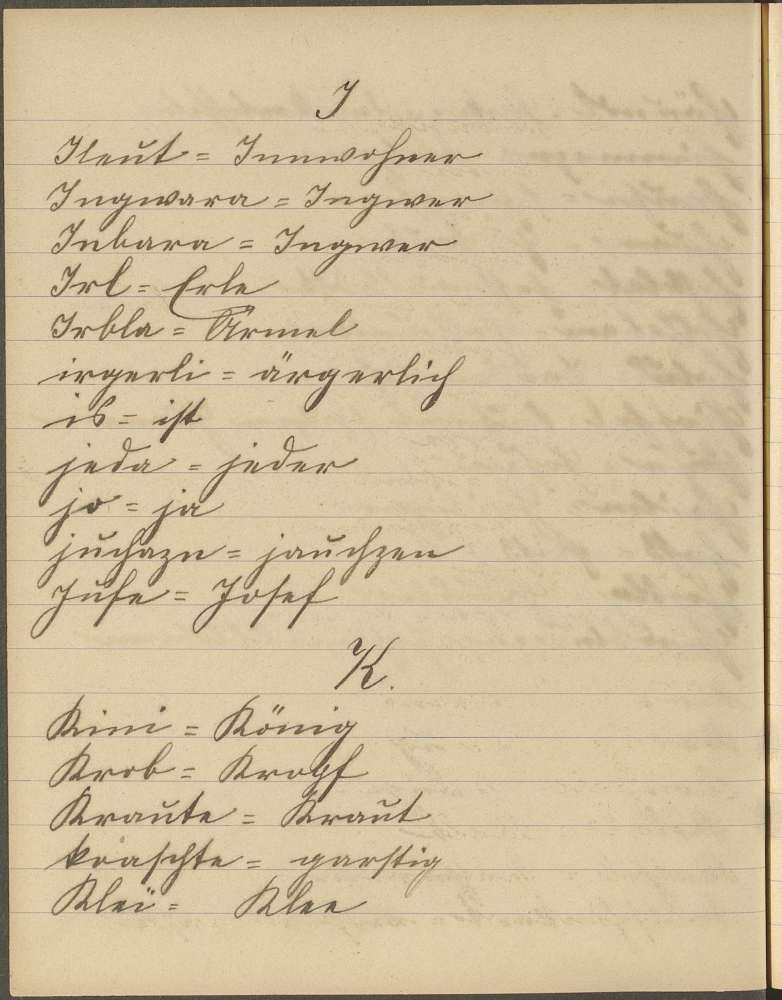 I
Ileut = Innwohner
Ingwara = Ingwer
Inbara = Ingwer
Irl = Erle
Irbla = Ärmel
irgerli = ärgerlich
is = ist
jeda = jeder
jo = ja
juchazn = jauchzen
Jufe = Josef
K.
Kini = König
Krob = Kropf
Kraute = Kraut
koaschte = garstig
Klei = Klee